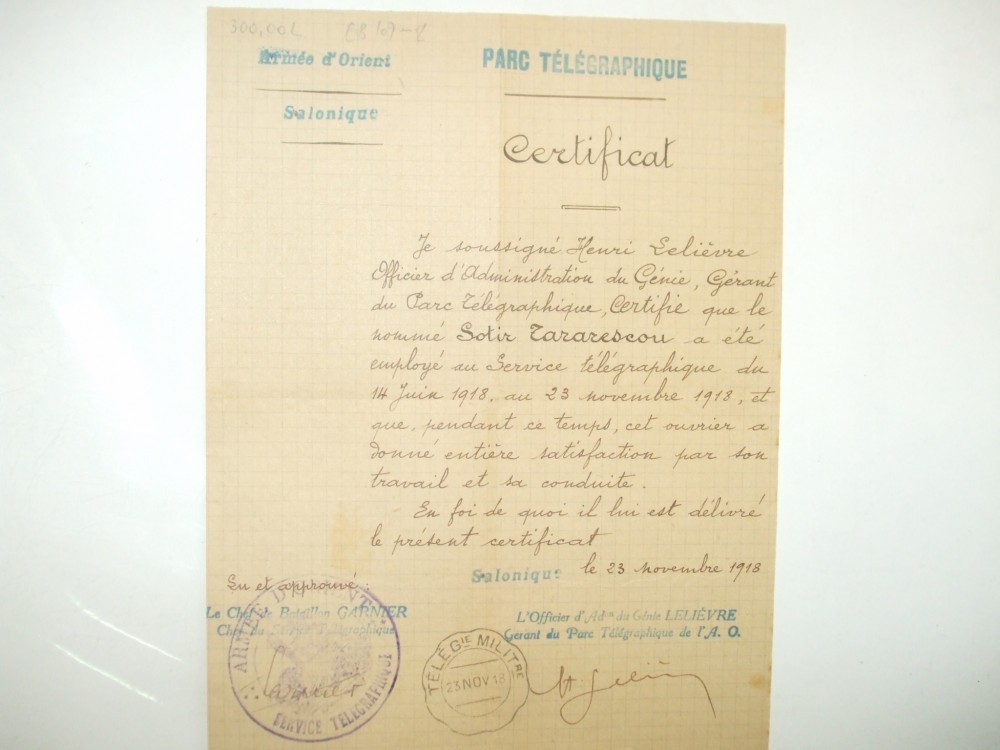 300,00L
Armée d'Orient
Salonique
PARC TÉLÉGRAPHIQUE
Certificat
Je soussigné Henri Lelièvre
Officier d'Administration du Génie, Gérant
du Parc Télégraphique, Certifie que le
nommé Sotir Tararescou a été
employé au Service télégraphique du
14 Juin 1918, au 23 novembre 1918, et
que, pendant ce temps, cet ouvrier a
donné entière satisfaction par son
travail et sa conduite.
En foi de quoi il lui est délivré
le présent certificat
Salonique le 23 novembre 1918
Lu et approuvé:
Le Chef de Bataillon GARNIER
Chef du Service Télégraphique
ARMÉE D'ORIENT
SERVICE TÉLÉGRAPHIQUE
Garnier
TÉLÉGIE MILITRE
23 NOV 18
L'Officier d'Adon du Génie LELIÈVRE
Gerant du Parc Télégraphique de l'A. O.
H. Lelièvre